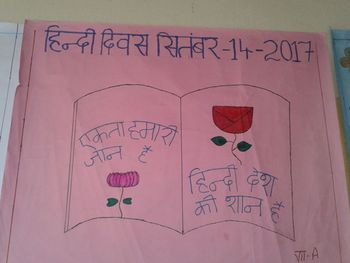 हिन्दी दिवस सितंबर-14-2017
एकता हमारी
जान है
हिन्दी देश
की शान है
VII-A